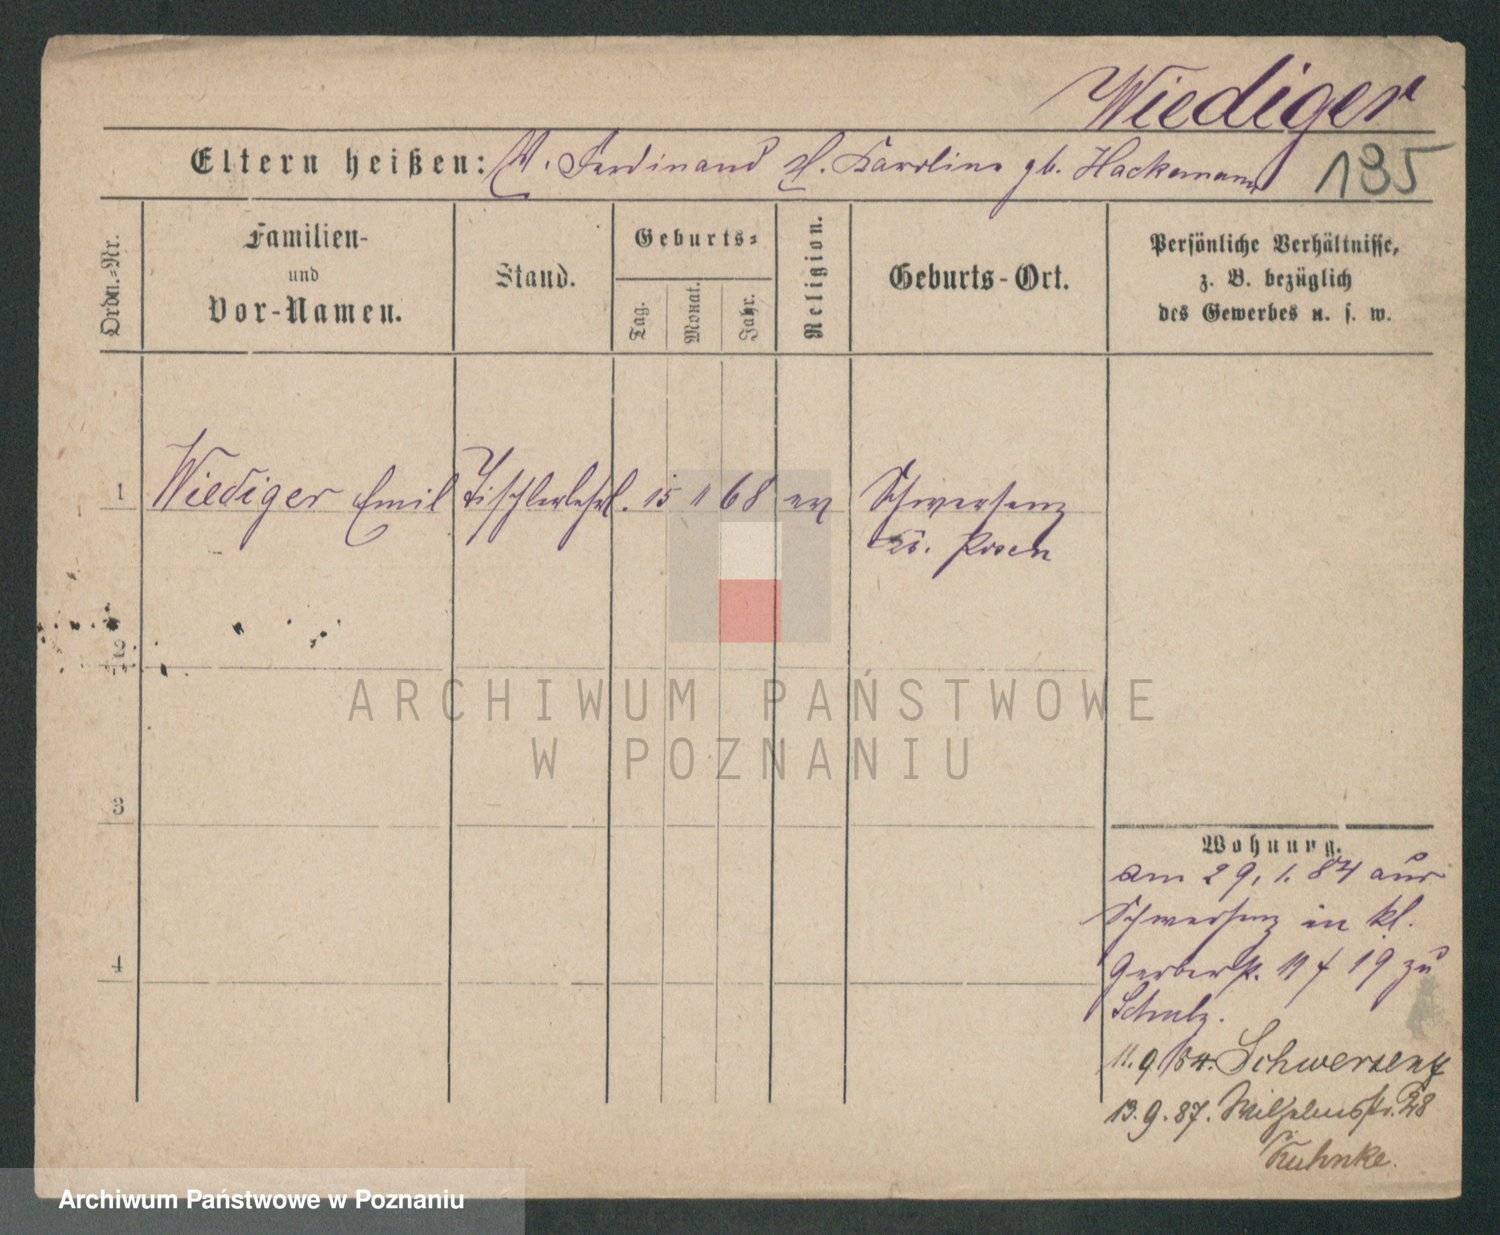 Wiediger
Eltern heißen: V. Ferdinand M. Karoline gb. Hackemann 135
Ordn.=Nr.
Familien-
und
Vor-Namen.
Stand.
Geburts=
Tag.
Monat.
Jahr.
Religion.
Geburts-Ort.
Persönliche Verhältnisse,
z. B. bezüglich
des Gewerbes u. s. w.
1 Wiediger Emil Tischlerlehrl. 15 11 68 ev Schwersenz
Kr. Posen
2
3
4
Wohnung.
am 29. 1. 84 aus
Schwersenz in kl.
Gerberstr. 11 f 19 zu
Schulz.
11.9.84. Schwersenz
13.9.87. Wilhelmsstr. 28
Kuhnke.
ARCHIWUM PAŃSTWOWE
W POZNANIU
Archiwum Państwowe w Poznaniu